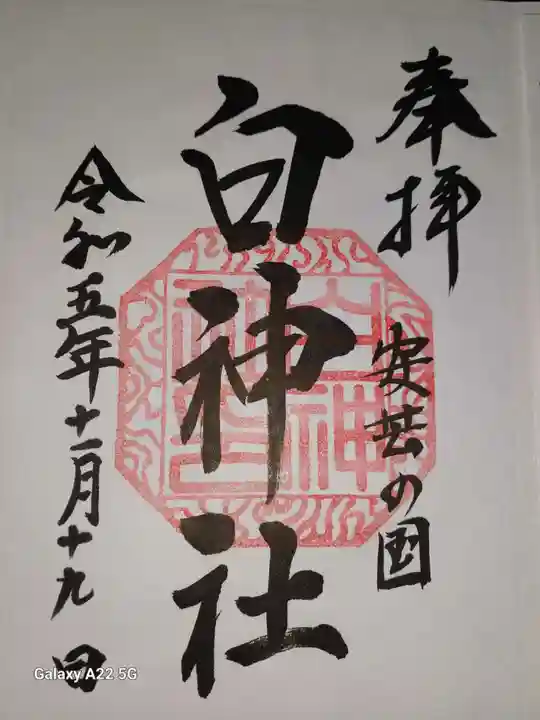 奉拝
安芸の国
白神社
令和五年十一月十九日
白神社
Galaxy A22 5G